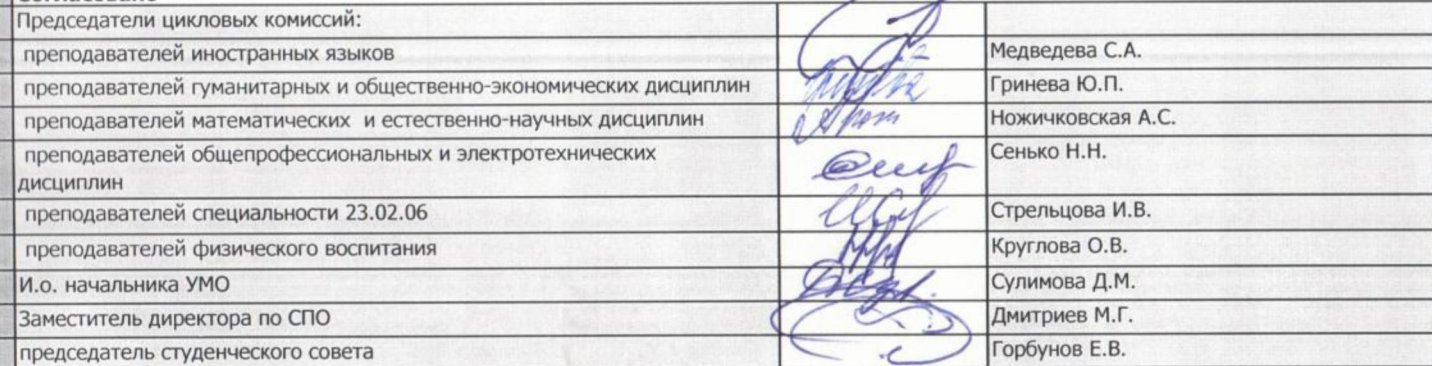 Председатели цикловых комиссий:
преподавателей иностранных языков Медведева С.А.
преподавателей гуманитарных и общественно-экономических дисциплин Гринева Ю.П.
преподавателей математических и естественно-научных дисциплин Ножичковская А.С.
преподавателей общепрофессиональных и электротехнических Сенько Н.Н.
дисциплин
преподавателей специальности 23.02.06 Стрельцова И.В.
преподавателей физического воспитания Круглова О.В.
И.о. начальника УМО Сулимова Д.М.
Заместитель директора по СПО Дмитриев М.Г.
председатель студенческого совета Горбунов Е.В.